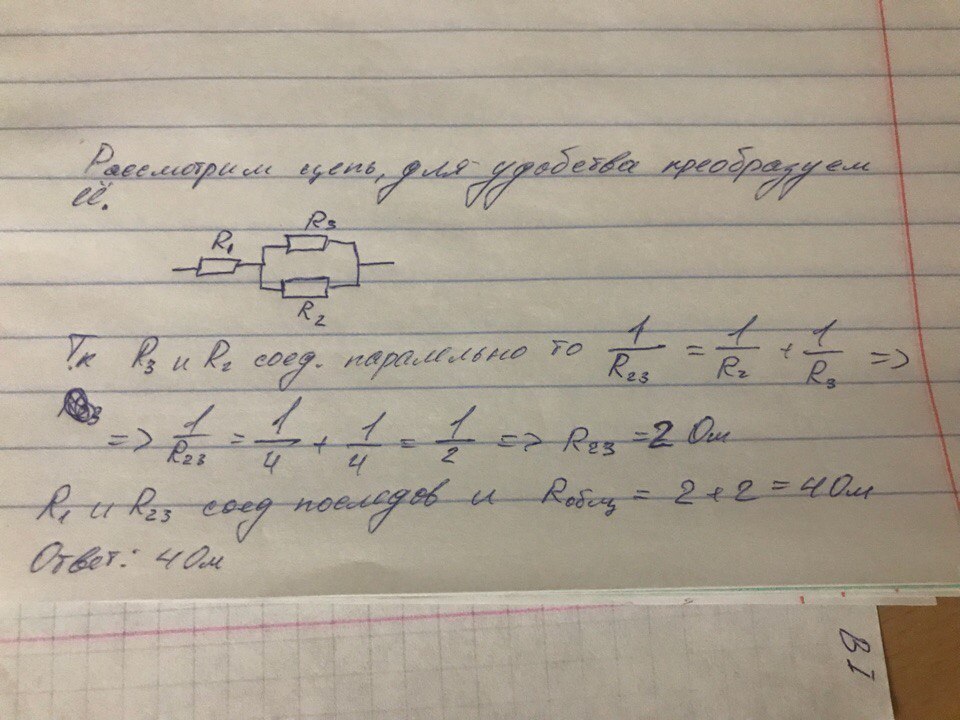 Рассмотрим цепь, для удобства преобразуем
её.
R1
R3
R2
Тк R3 и R2 соед. паралельно то 1/R23 = 1/R2 + 1/R3 =>
=> 1/R23 = 1/4 + 1/4 = 1/2 => R23 = 2 Ом
R1 и R23 соед последов и Rобщ = 2 + 2 = 4 Ом
Ответ: 4 Ом
BI